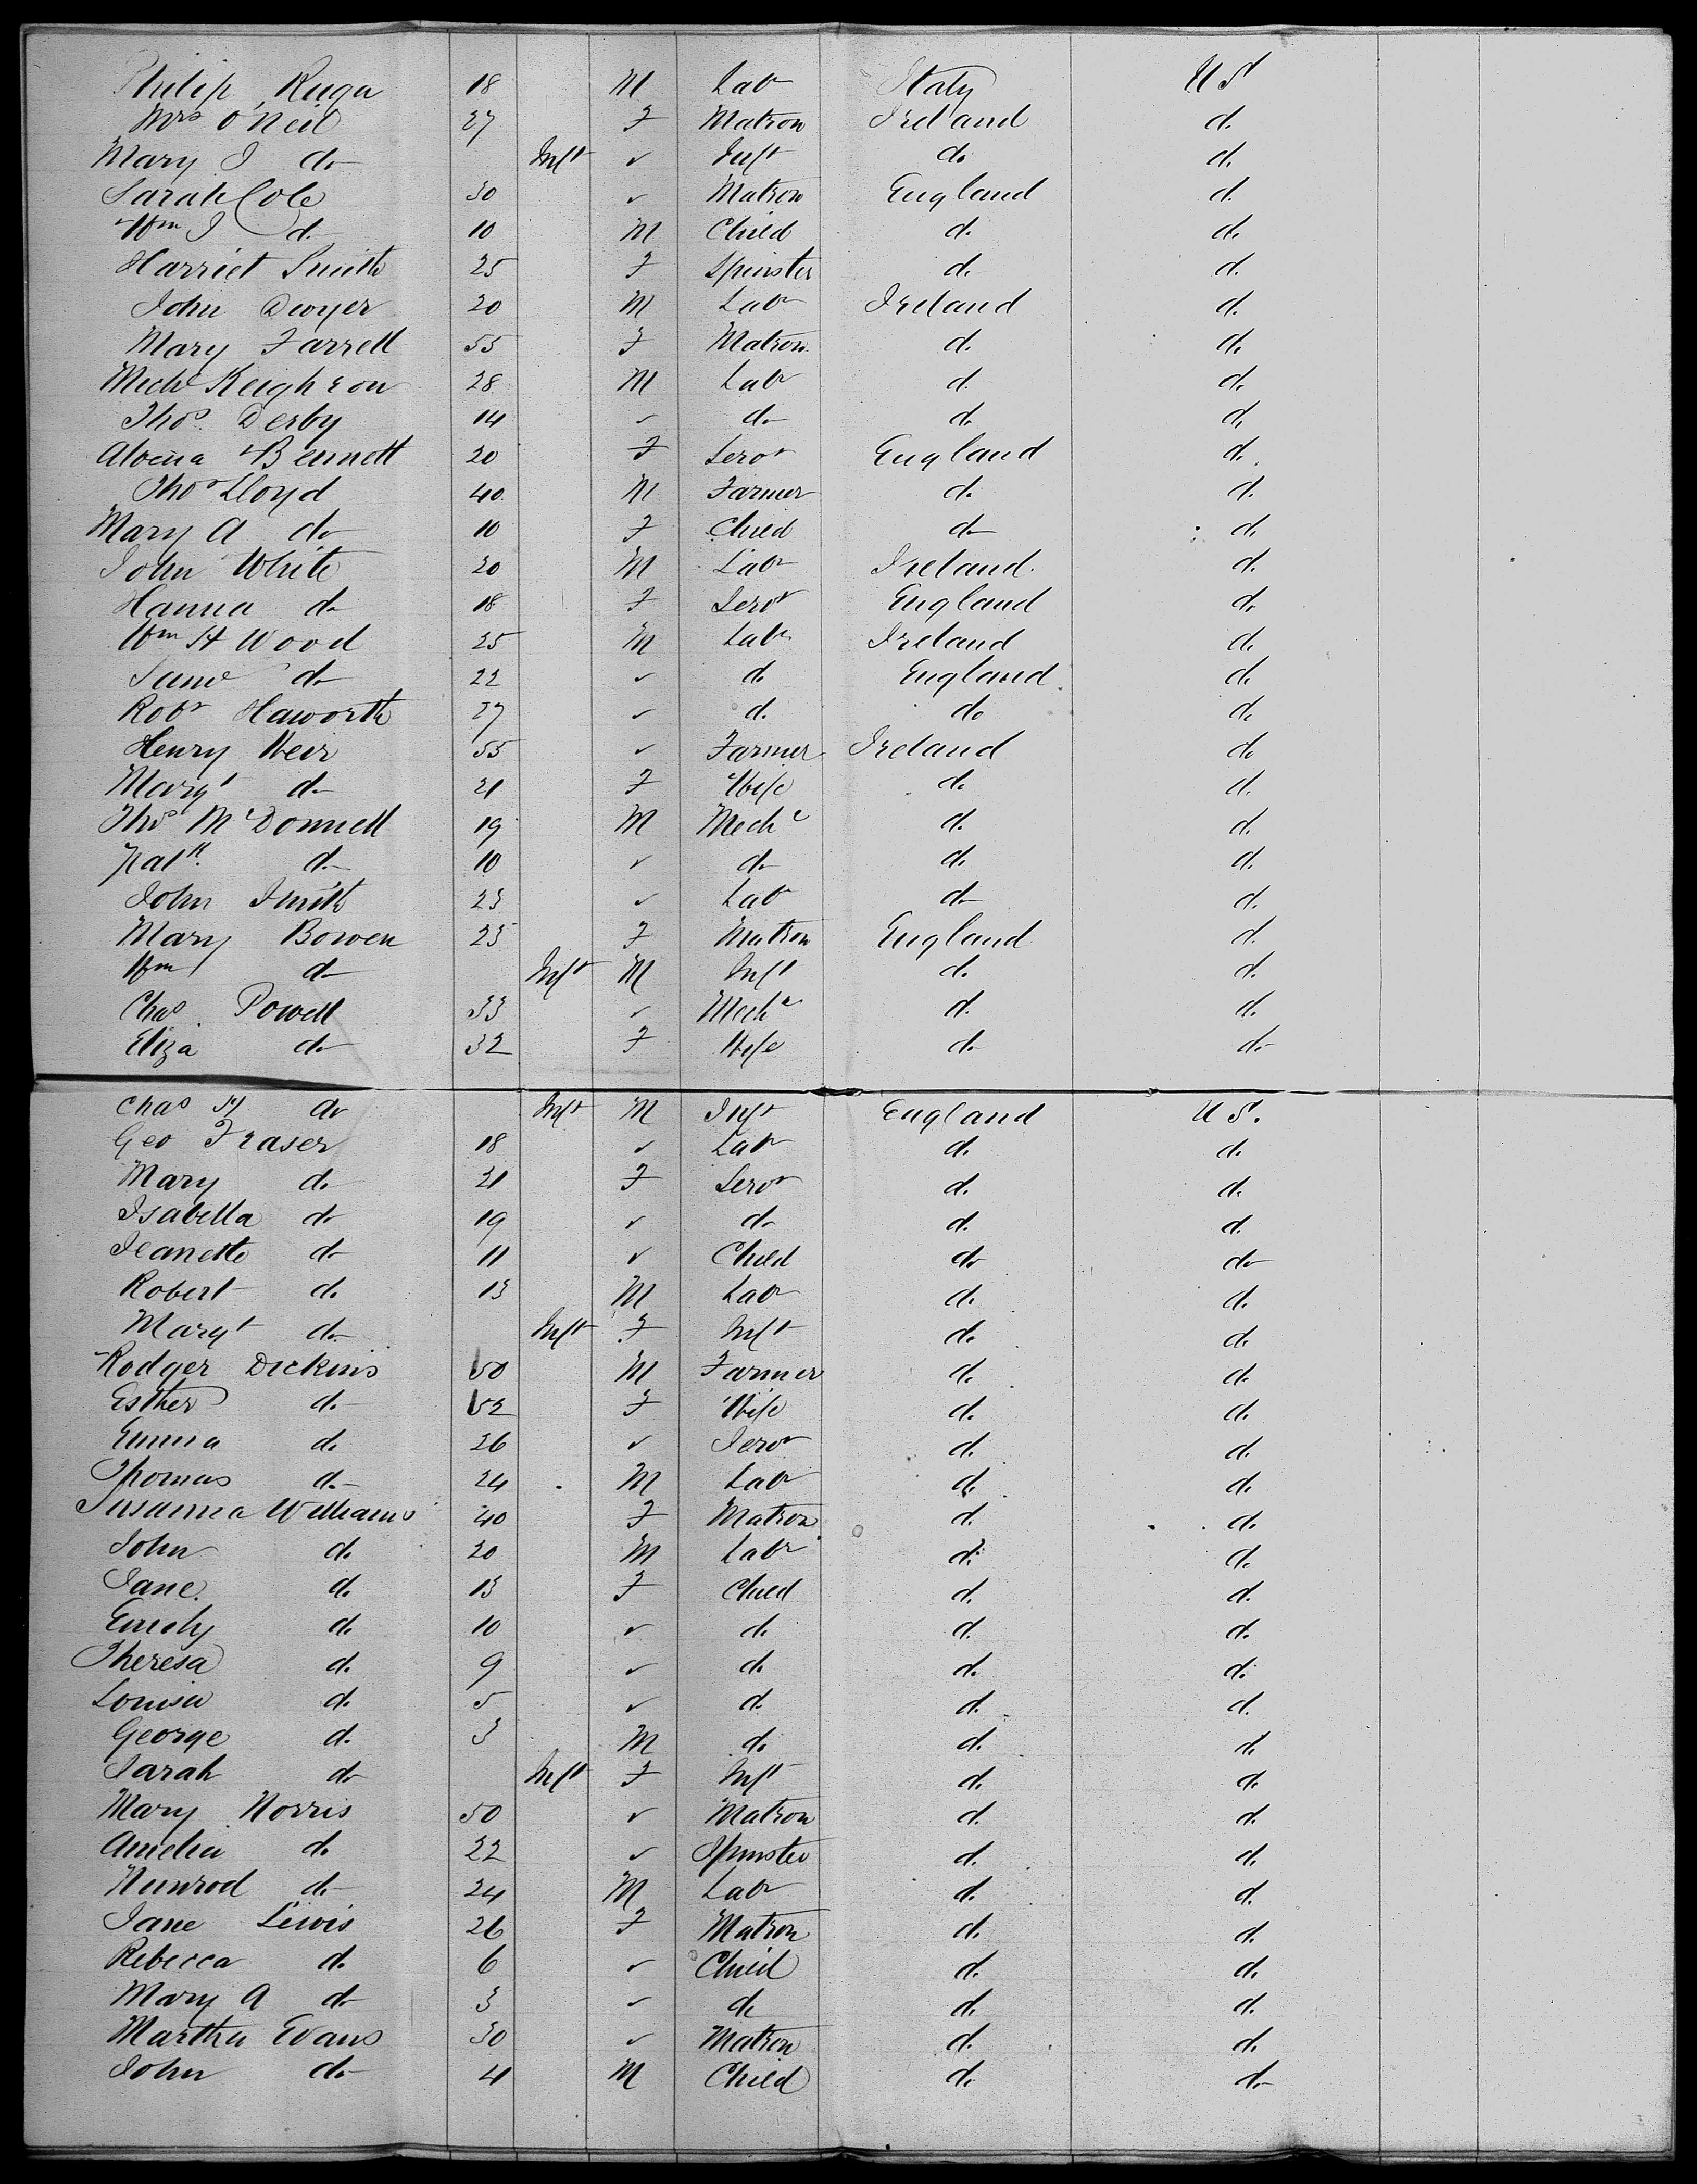 Philip Ruga 18 M Labr Italy U S
Mrs O'Neil 27 F Matron Ireland d.
Mary J do Inft ✓ Inft do d.
Sarah Cole 30 ✓ Matron England d.
Wm J d. 10 M Child d. d.
Harriet Smith 25 F Spinster d. d.
John Dwyer 20 M Labr Ireland d.
Mary Farrell 55 F Matron d. d.
Michl Keighron 28 M Labr d. d.
Thos. Derby 14 ✓ do d. d.
Alvena Bennett 20 F Servt England d.
Thos Lloyd 40 M Farmer d. d.
Mary A do 10 F Child do d.
John White 20 M Labr Ireland d.
Hanna do 18 F Servt England d.
Wm H Wood 25 M Labr Ireland d.
Saml do 22 ✓ d. England d.
Robt Haworth 27 ✓ d. do d.
Henry Weir 55 ✓ Farmer Ireland do
Margt do 21 F Wife d. d.
Thos McDonnell 19 M Mechc d. d.
Patk. do 10 ✓ do d. d.
John Smith 23 ✓ Labr do d.
Mary Bowen 25 F Matron England d.
Wm do Inft M Inft d. d.
Chas. Powell 33 ✓ Mechc d. d.
Eliza do 32 F Wife do do
Chas H do Inft M Inft England U S.
Geo Fraser 18 ✓ Labr d. d.
Mary d. 21 F Servt d. d.
Isabella do 19 ✓ do d. d.
Jeanette do 11 ✓ Child do do
Robert d. 13 M Labr d. d.
Margt do Inft F Inft d. d.
Rodger Dickins 50 M Farmer d. d.
Esther do 52 F Wife d. d.
Emma d. 26 ✓ Servt d. d.
Thomas do 24 M Labr d. d.
Susanna Williams 40 F Matron d. d.
John d. 20 M Labr d. d.
Jane d. 13 F Child d. d.
Emily d. 10 ✓ d. d. d.
Theresa d. 9 ✓ d. d. d.
Louisa d. 5 ✓ d. d. d.
George d. 3 M d. d. d.
Sarah do Inft F Inft d. d.
Mary Norris 50 ✓ Matron d. d.
Amelia d. 22 ✓ Spinster d. d.
Nimrod do 24 M Labr d. d.
Jane Lewis 26 F Matron d. d.
Rebecca d. 6 ✓ Child d. d.
Mary A do 3 ✓ d. d. d.
Martha Evans 30 ✓ Matron d. d.
John do 4 M Child d. do